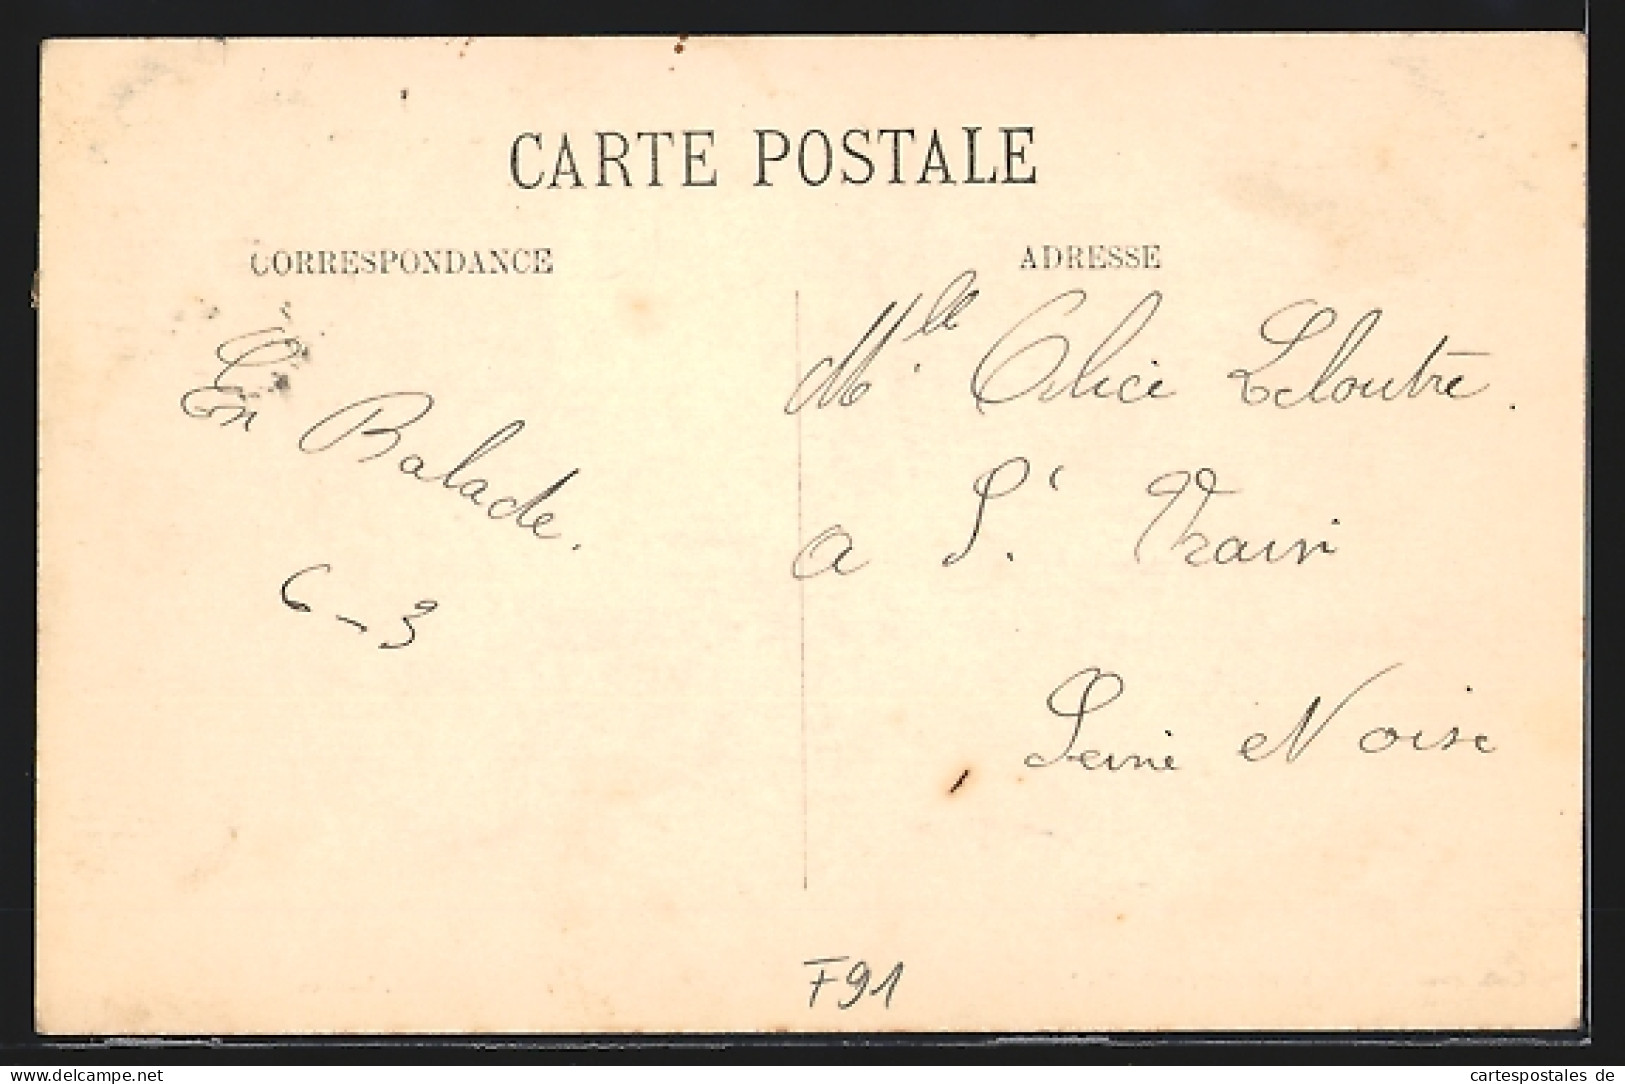 CARTE POSTALE
CORRESPONDANCE
ADRESSE
En Balade.
6-3
Mlle. Alice Leloutre.
a St. Vrain
Seine et Oise
F91
delcampe.net
cartespostales de